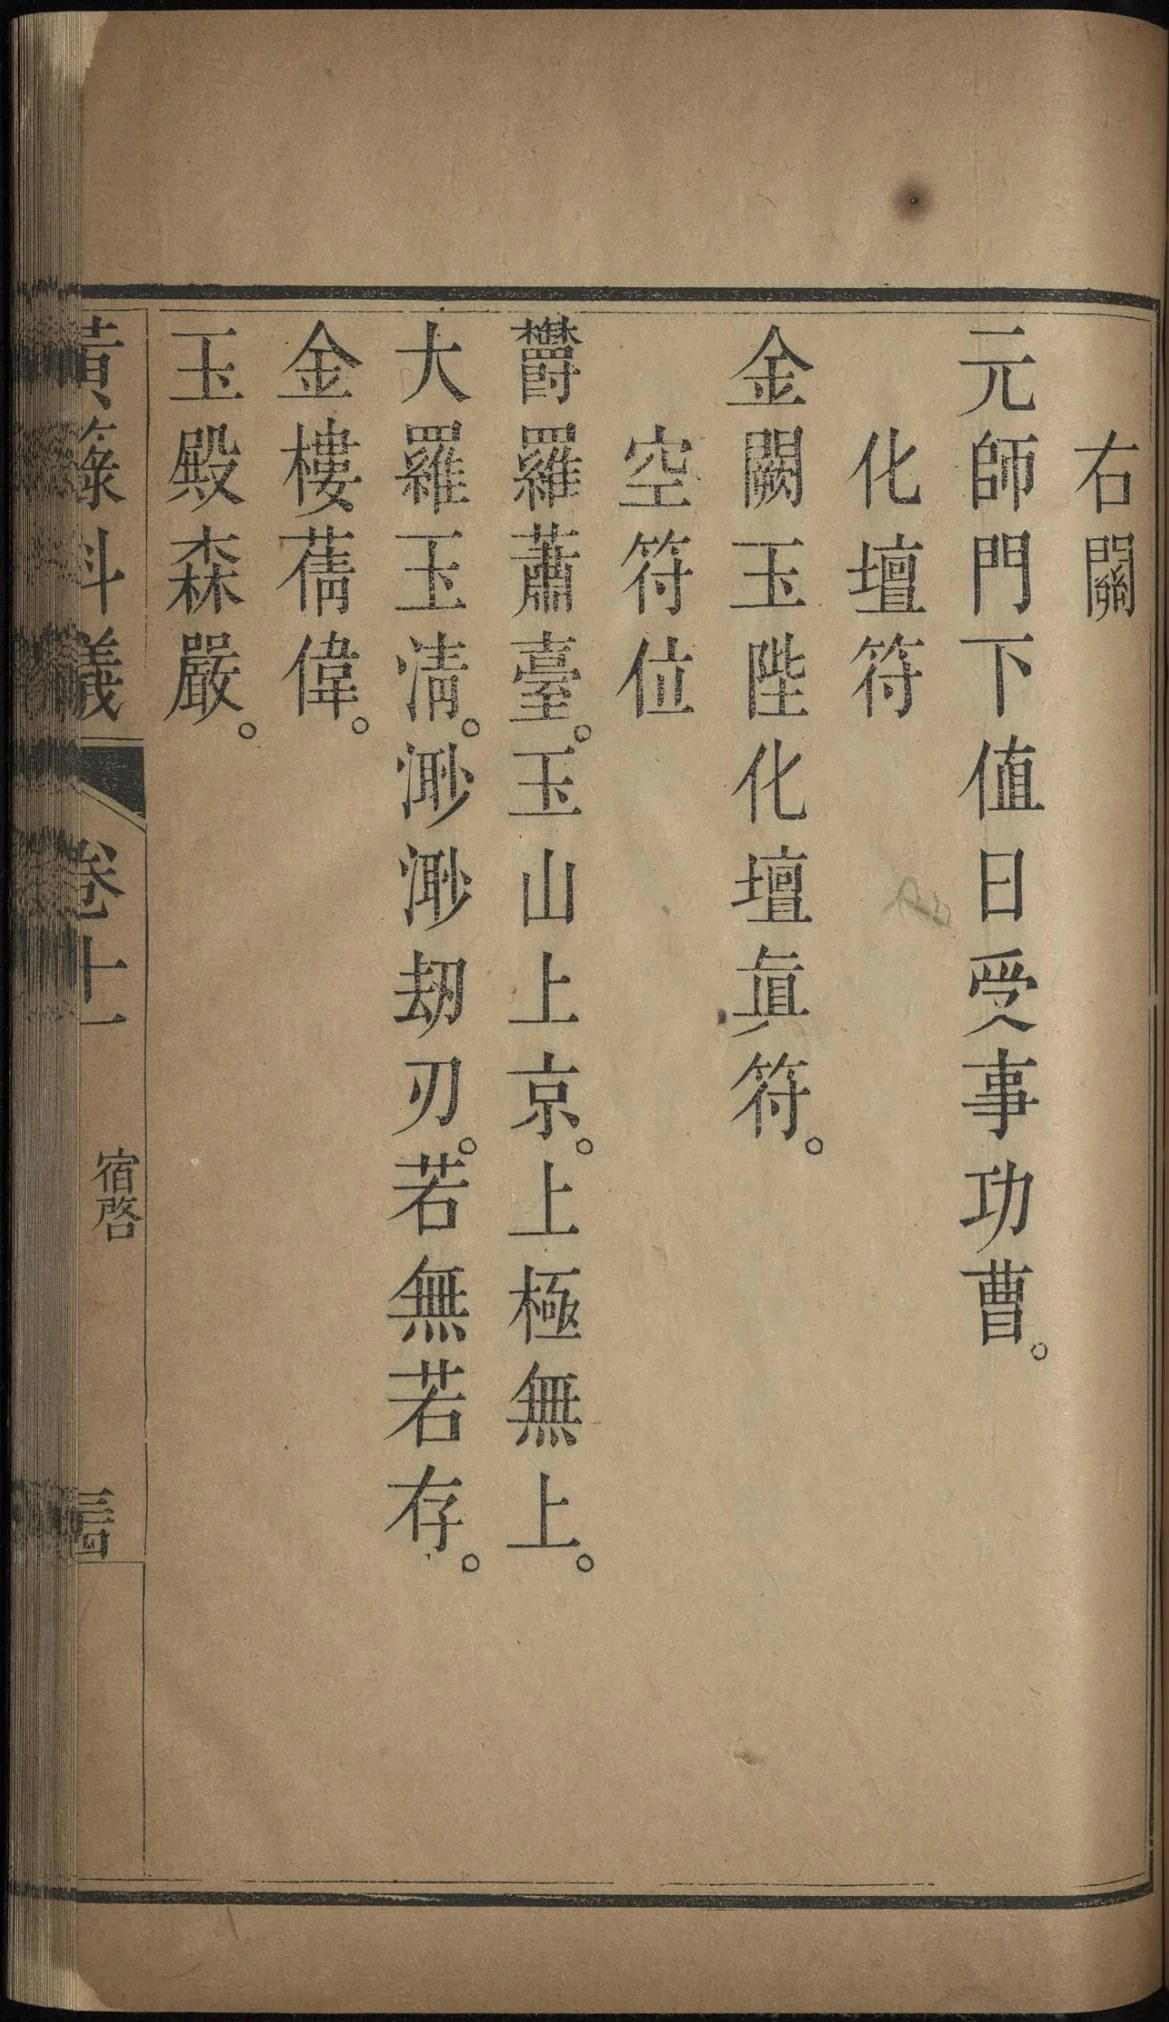 右關
元師門下值日受事功曹。
化壇符
金闕玉陛化壇眞符。
空符位
鬱羅蕭臺。玉山上京。上極無上。
大羅玉清。渺渺劫刃。若無若存。
金樓蒨偉。
玉殿森嚴。
黃籙科儀
卷十一
宿啓